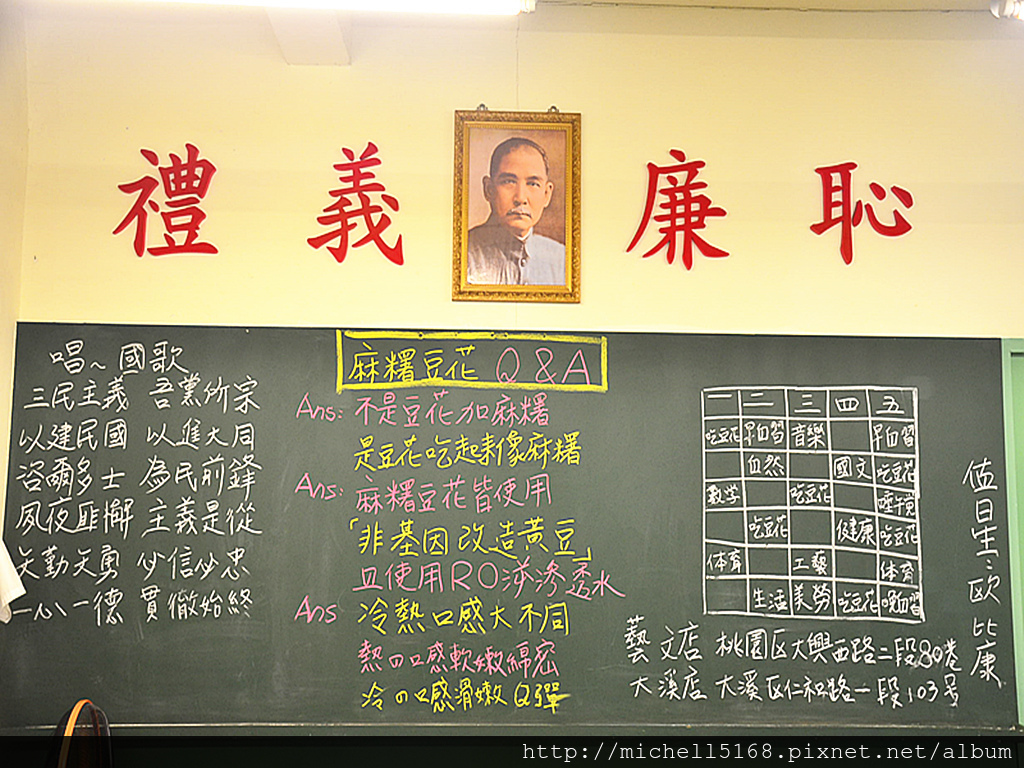 禮 義 廉 恥
唱~國歌
三民主義 吾黨所宗
以建民國 以進大同
咨爾多士 為民前鋒
夙夜匪懈 主義是從
矢勤矢勇 必信必忠
一心一德 貫徹始終
麻糬豆花 Q&A
Ans: 不是豆花加麻糬
是豆花吃起來像麻糬
Ans: 麻糬豆花皆使用
「非基因改造黃豆」
且使用RO逆滲透水
Ans 冷熱口感大不同
熱の口感軟嫩綿密
冷の口感滑嫩Q彈
一 二 三 四 五
吃豆花 早自習 音樂 早自習
自然 國文 吃豆花
數学 吃豆花 睡午覺
吃豆花 健康 吃豆花
体育 工藝 体育
生活 美勞 吃豆花 晚自習
藝文店 桃園区大興西路二段80巷
大溪店 大溪区仁和路一段103号
值日生:欧比康
http://michell5168.pixnet.net/album